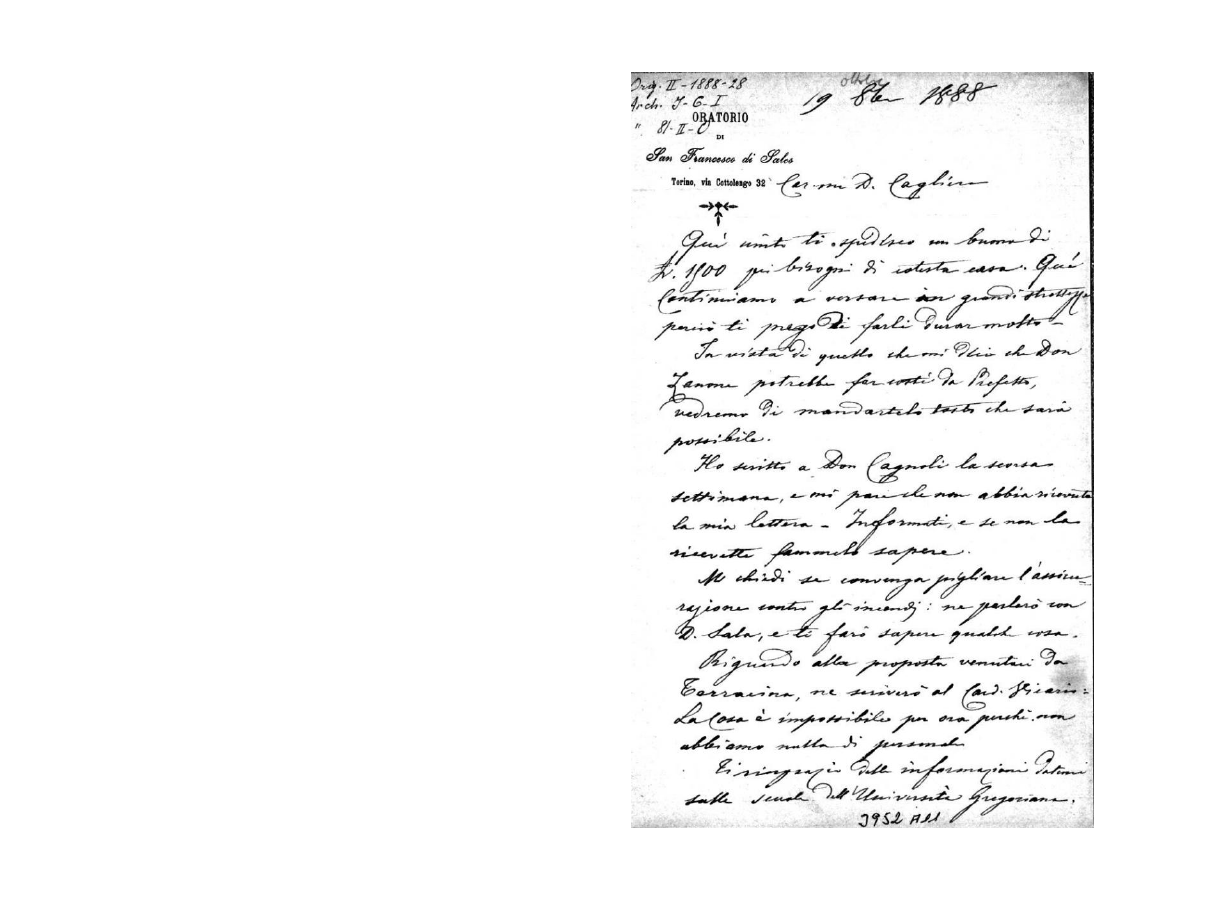 Orig. II-1888-28
Arch. J-G-I
" 81-II-0
ottobre
19 8bre 1888
ORATORIO
DI
San Francesco di Sales
Torino, via Cottolengo 32
Car.mo D. Cagliero
Qui unito ti spedisco un buono di
L. 1500 pei bisogni di cotesta casa. Qui
Continuiamo a versare in grandi strettezze
perciò ti prego di farli durar molto -
In vista di quello che mi dici che Don
Zanone potrebbe far costì da Prefetto,
vedremo di mandartelo tosto che sarà
possibile.
Ho scritto a Don Cagnoli la scorsa
settimana, e mi pare che non abbia ricevuta
la mia lettera - Informati, e se non la
ricevette fammelo sapere.
Mi chiedi se convenga pigliare l'assicu-
razione contro gli incendj: ne parlerò con
D. Sala, e ti farò sapere qualche cosa.
Riguardo alla proposta venutaci da
Terracina, ne scriverò al Card. Vicario:
La Cosa è impossibile per ora perchè non
abbiamo nulla di personale
Ti ringrazio delle informazioni datemi
sulle scuole dell'Università Gregoriana.
3952 A11